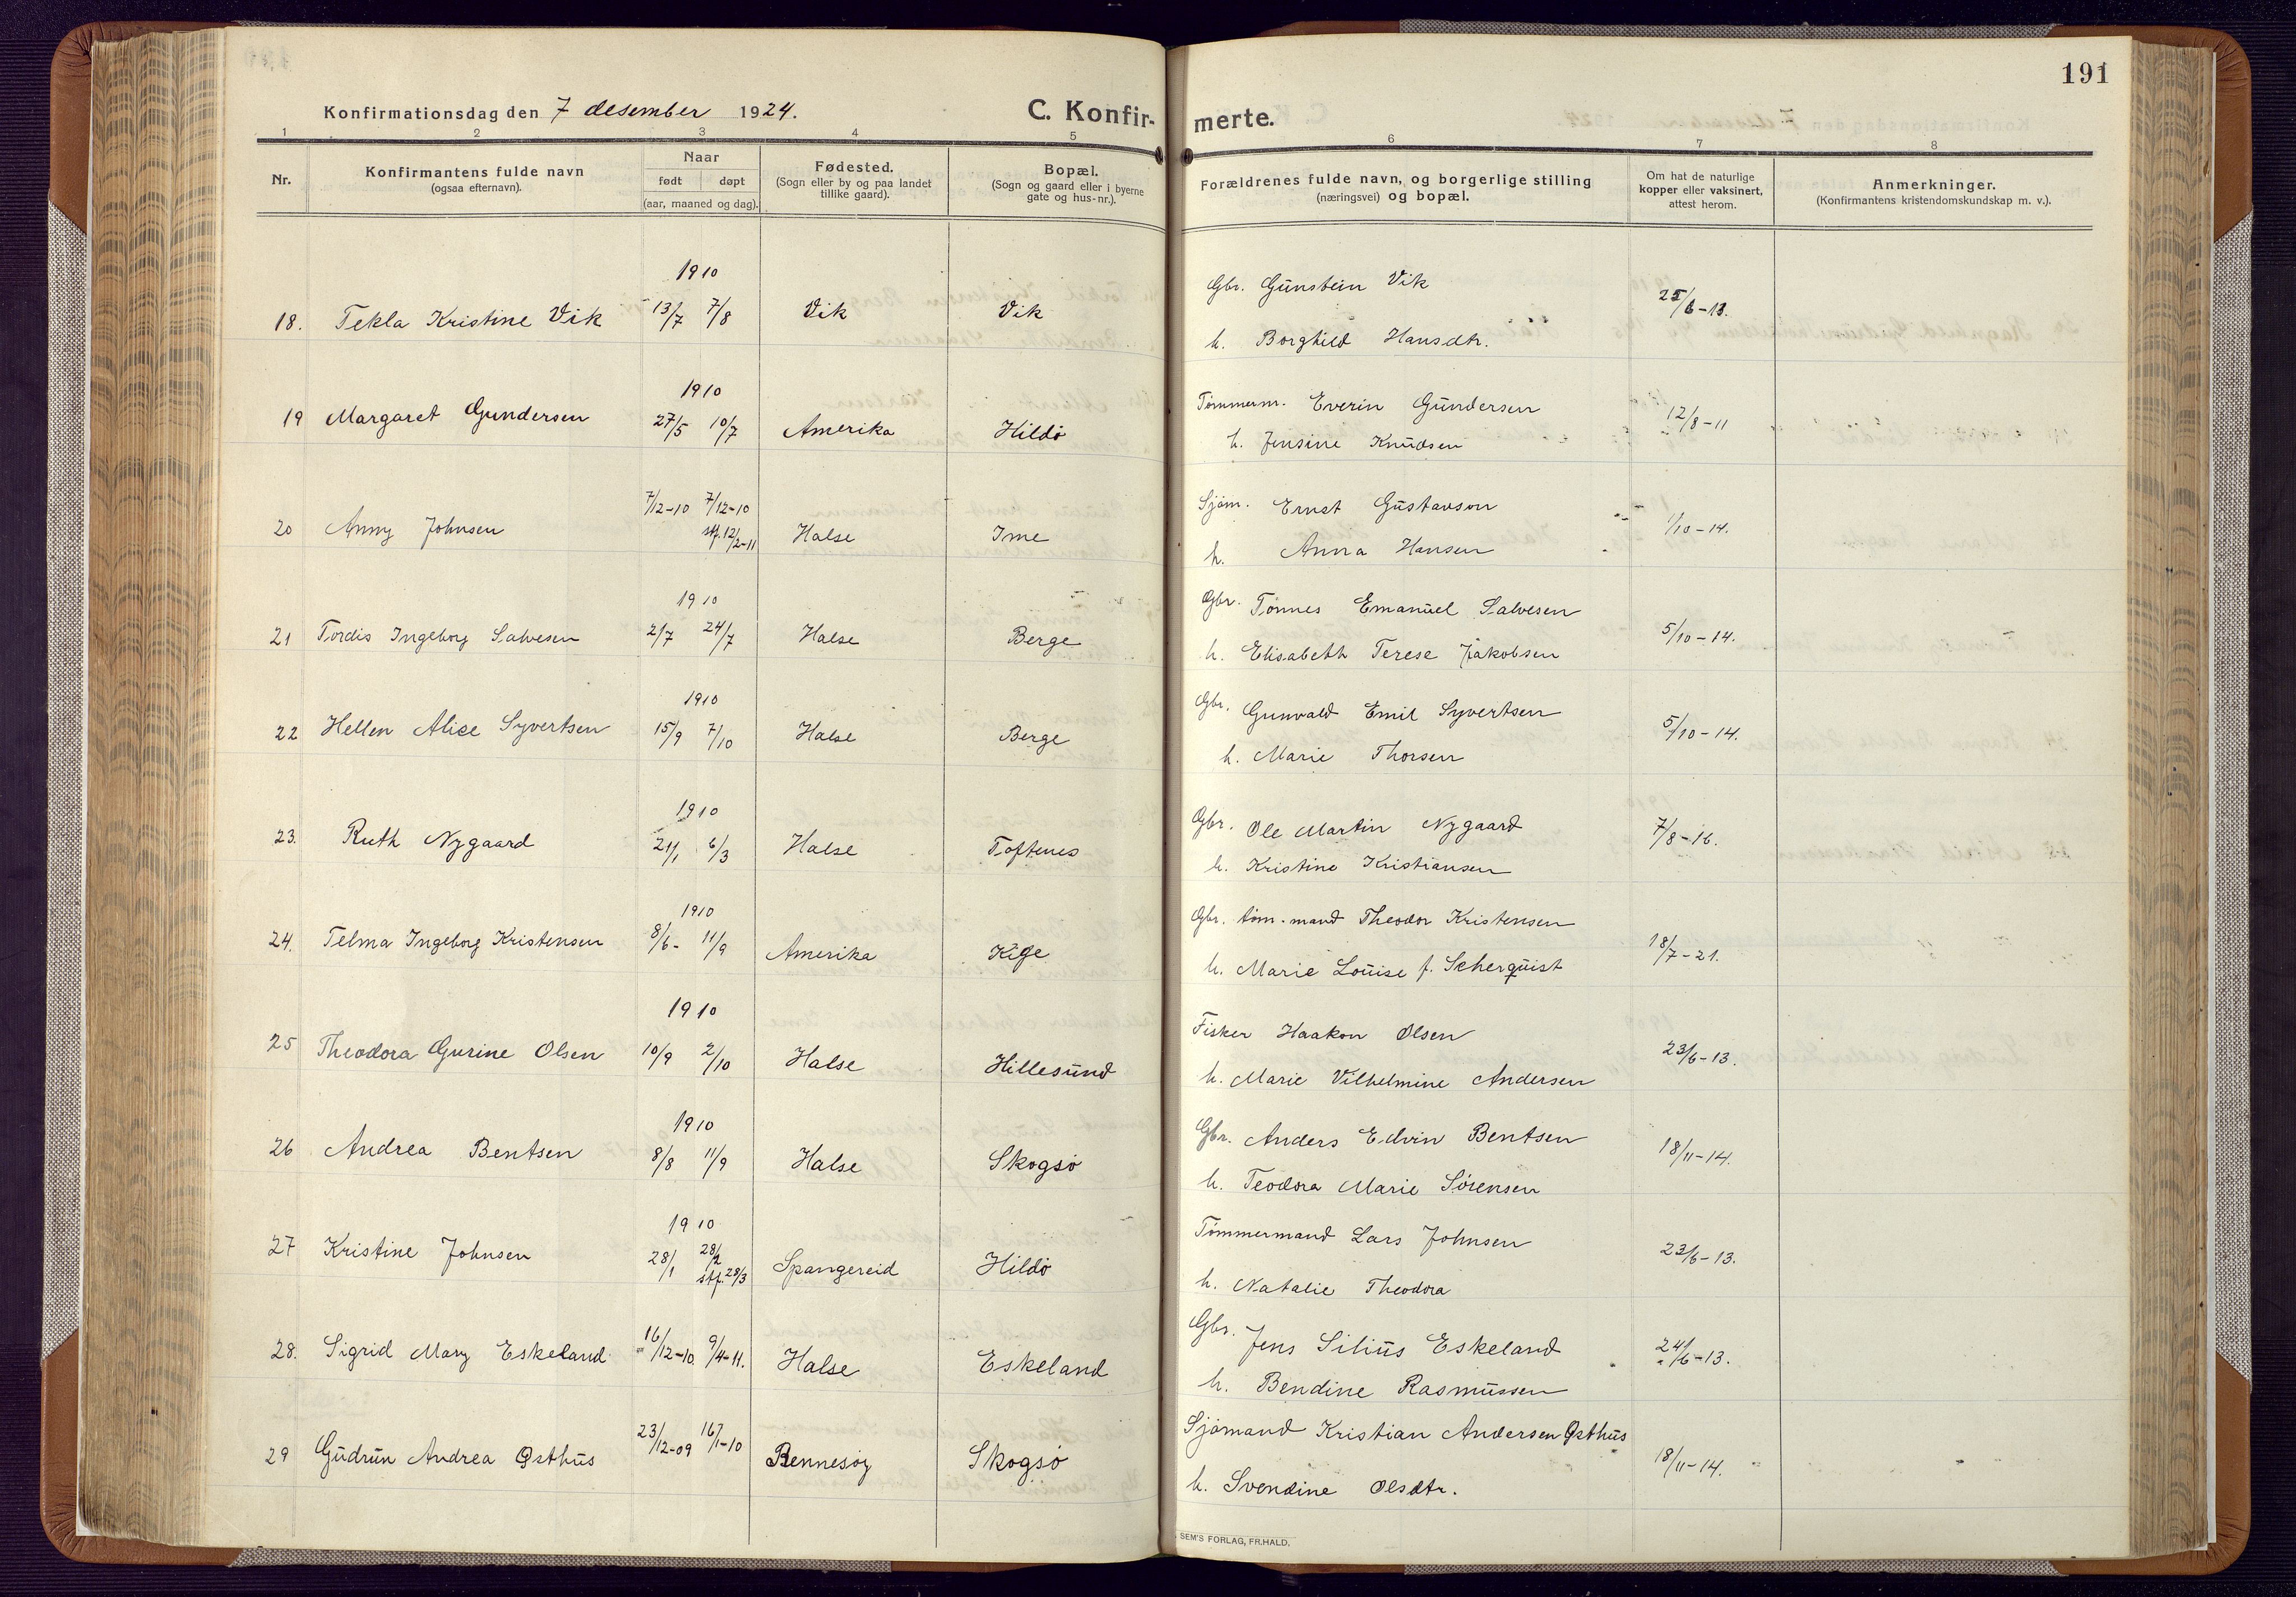 191
Konfirmationsdag den 7 desember 1924.
C. Konfir-
merte.
1 2 3 4 5 6 7 8
Nr.
Konfirmantens fulde navn
(ogsaa efternavn).
Naar
født døpt
(aar, maaned og dag).
Fødested.
(Sogn eller by og paa landet
tillike gaard).
Bopæl.
(Sogn og gaard eller i byerne
gate og hus-nr.).
Forældrenes fulde navn, og borgerlige stilling
(næringsvei) og bopæl.
Om hat de naturlige
kopper eller vaksinert,
attest herom.
Anmerkninger.
(Konfirmantens kristendomskundskap m. v.).
1910
18. Tekla Kristine Vik 13/7 7/8 Vik Vik
Gbr. Gunstein Vik
h. Borghild Hansdtr.
25/6-13.
1910
19 Margaret Gundersen 27/5 10/7 Amerika Hildø
Tømmerm. Everin Gundersen
h. Jensine Knudsen
12/8-11
20 Anny Johnsen 7/12-10 7/12-10 Halse Ime
stf. 12/2-11
Sjøm. Ernst Gustavson
h. Anna Hansen
1/10-14.
1910
21 Tordis Ingeborg Salvesen 2/7 24/7 Halse Berge
Gbr. Tønnes Emanuel Salvesen
h. Elisabeth Terese Jakobsen
5/10-14.
1910
22 Hellen Alice Syvertsen 15/9 7/10 Halse Berge
Gbr. Gunvald Emil Syvertsen
h. Marie Thorsen
5/10-14.
1910
23. Ruth Nygaard 21/1 6/3 Halse Toftenes
Gbr. Ole Martin Nygaard
h. Kristine Kristiansen
7/8-16.
1910
24. Telma Ingeborg Kristensen 8/6- 11/9 Amerika Kige
Gbr. tøm.mand Theodor Kristensen
h. Marie Louise f. Scherquist
18/7-21.
1910
25 Theodora Gurine Olsen 10/9 2/10 Halse Hillesund
Fisker Haakon Olsen
h. Marie Vilhelmine Andersen
23/6-13.
1910
26 Andrea Bentsen 8/8 11/9 Halse Skogsø
Gbr. Anders Edvin Bentsen
h. Teodora Marie Sørensen
18/11-14.
1910
27 Kristine Johnsen 28/1 28/2 Spangereid Hildø
stf. 28/3
Tømmermand Lars Johnsen
h. Natalie Theodora
23/6-13.
28. Sigrid Mary Eskeland 16/12-10. 9/4-11. Halse Eskeland
Gbr. Jens Silius Eskeland
h. Bendine Rasmussen
24/6-13.
29 Gudrun Andrea Østhus 23/12-09 16/1-10 Rennesøy Skogsø
Sjømand Kristian Andersen Østhus
h. Svendine Olsdtr.
18/11-14.
SEM'S FORLAG, FR.HALD.